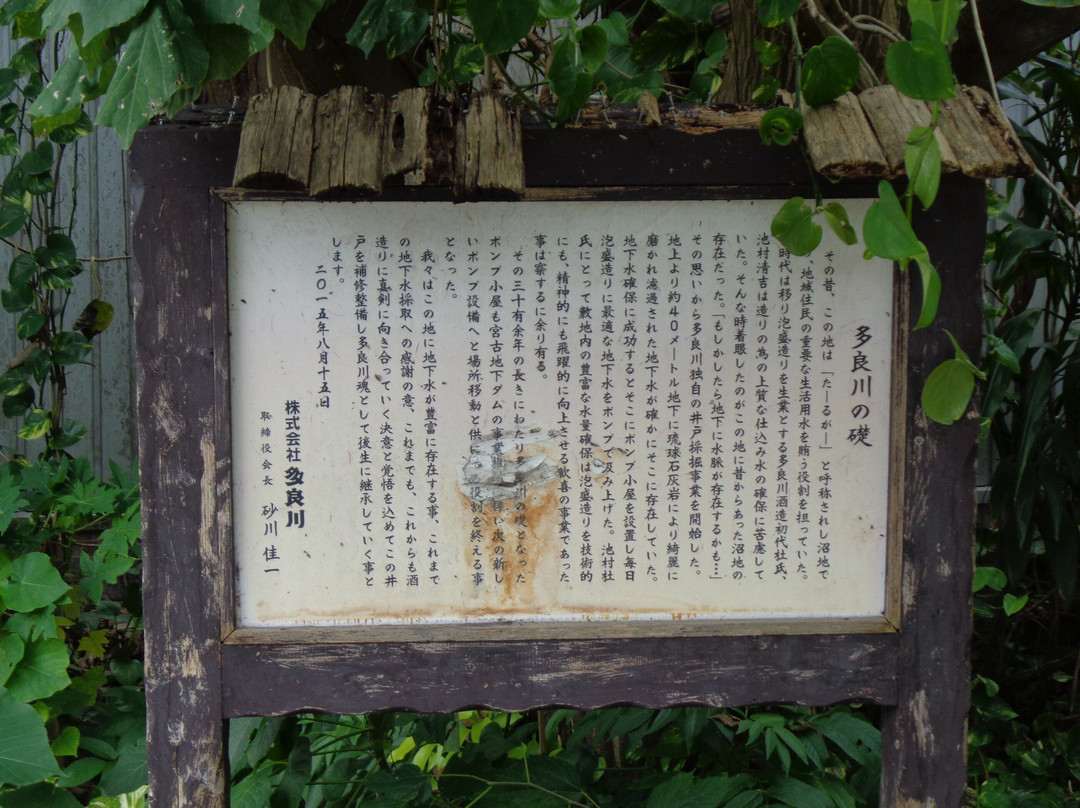 多良川の礎
その昔、この地は「たーるがー」と呼称されし沼地で
、地域住民の重要な生活用水を賄う役割を担っていた。
時代は移り泡盛造りを生業とする多良川酒造初代社氏、
池村清吉は造りの為の上質な仕込み水の確保に苦慮して
いた。そんな時着眼したのがこの地に昔からあった沼地の
存在だった。「もしかしたら地下に水脈が存在するかも…」
その思いから多良川独自の井戸採掘事業を開始した。
地上より約40メートル地下に琉球石灰岩により綺麗に
磨かれ濾過された地下水が確かにそこに存在していた。
地下水確保に成功するとそこにポンプ小屋を設置し毎日
泡盛造りに最適な地下水をポンプで汲み上げた。池村社
氏にとって敷地内の豊富な水量確保は泡盛造りを技術的
にも、精神的にも飛躍的に向上させる歓喜の事業であった
事は察するに余り有る。
その三十有余年の長きにわたり多 川の礎となった
ポンプ小屋も宮古地下ダムの事業 伴い次の新し
いポンプ設備へと場所移動と供に 役割を終える事
となった。
我々はこの地に地下水が豊富に存在する事、これまで
の地下水採取への感謝の意、これまでも、これからも酒
造りに真剣に向き合っていく決意と覚悟を込めてこの井
戸を補修整備し多良川魂として後生に継承していく事と
します。
二〇一五年八月十五日
株式会社 多良川
取締役会長 砂川 佳一